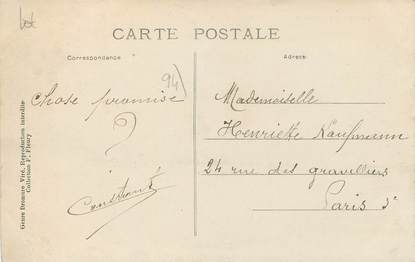 CARTE POSTALE
Correspondance
Adresse
94)
chose promise
?
Mademoiselle
Henriette Kaufmann
24 rue des gravilliers
Paris 3e
Genre Demeure Viré, Reproduction interdite
Collection F. Fleury